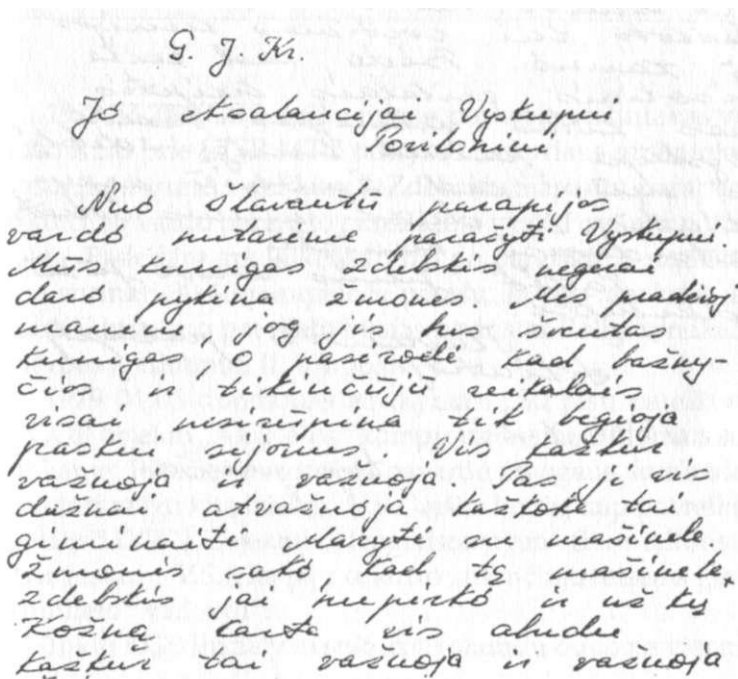 G. J. Kr.
Jo Excelencijai Vyskupui
Povilonini,
Nuo Šlavantų parapijos
vardo noriu parašyt Vyskupui.
Mūs kunigas Zdebskis negerai
daro pykina žmonis. Mes pradžioj
manėm, jogiai jis hus
kunigas, o pasirodė, kad bažny-
čia ir tikinčiųjų reikalais
visai nesirūpina tik bėgioja
paskui sijonus vis kažkur
važnoja ir važnoja. Pas jį vis
dažnai atvažnoja raštorių tai
gi matė maryte su mašinele,
žmonis sako kad tą mašinelę
Zdebskis jai nupirko ir už tą
Kožną vis abudu
kaškur tai važnoja ir važnoja